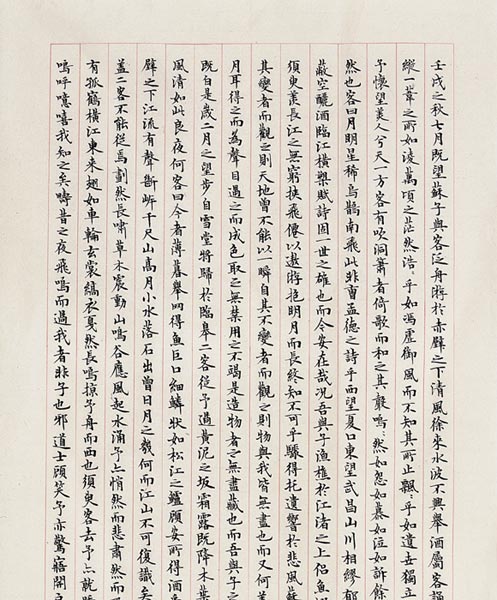 壬戌之秋七月既望蘇子與客泛舟游於赤壁之下清風徐來水波不興舉酒屬客誦
縱一葦之所如淩萬頃之茫然浩〻乎如馮虛御風而不知其所止飄〻乎如遺世獨立
予懷望美人兮天一方客有吹洞簫者倚歌而和之其聲嗚〻然如怨如慕如泣如訴餘
然也客曰月明星稀烏鵲南飛此非曹孟德之詩乎西望夏口東望武昌山川相繆郁
蔽空釃酒臨江橫槊賦詩固一世之雄也而今安在哉況吾與子漁樵於江渚之上侶魚
須臾羨長江之無窮挾飛僊以遨遊抱明月而長終知不可乎驟得托遺響於悲風蘇
其變者而觀之則天地曾不能以一瞬自其不變者而觀之則物與我皆無盡也而又何羨
月耳得之而為聲目遇之而成色取之無禁用之不竭是造物者之無盡藏也而吾與子之
既白是歲十月之望步自雪堂將歸於臨皋二客從予過黃泥之坂霜露既降木葉
風清如此良夜何客曰今者薄暮舉網得魚巨口細鱗狀如松江之鱸顧安所得酒乎
壁之下江流有聲斷岸千尺山高月小水落石出曾日月之幾何而江山不可復識矣
蓋二客不能從焉劃然長嘯草木震動山鳴谷應風起水涌予亦悄然而悲肅然而
有孤鶴橫江東來翅如車輪玄裳縞衣戛然長鳴掠予舟而西也須臾客去予亦就睡
嗚呼噫嘻我知之矣疇昔之夜飛鳴而過我者非子也邪道士顧笑予亦驚寤開戶